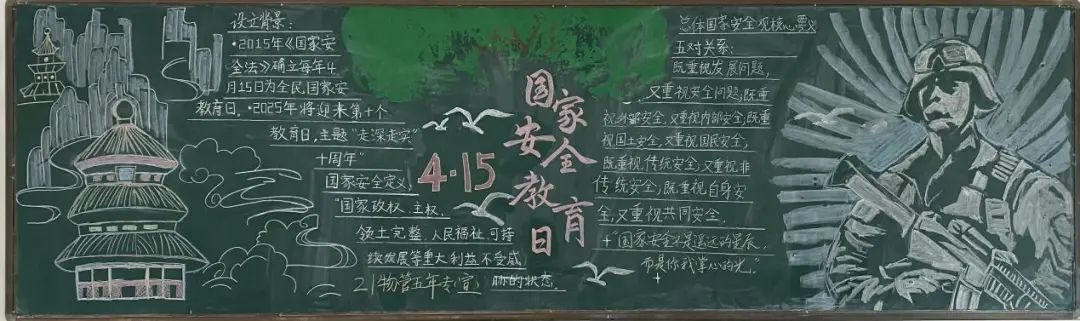 设立背景：
·2015年《国家安
全法》确立每年4
月15日为全民国家安
教育日。·2025年将迎来第十个
教育日,主题"走深走实
十周年"
国家安全定义,
"国家政权、主权、
领土完整、人民福祉、可持
续发展等重大利益不受威
胁的状态。
21物管五年专(壹)
4·15
国家安全教育日
总体国家安全观核心要义
五对关系：
既重视发展问题,
又重视安全问题;既重
视外部安全,又重视内部安全;既重
视国土安全,又重视国民安全;
既重视传统安全,又重视非
传统安全;既重视自身安
全,又重视共同安全。
+"国家安全不是遥远的星辰,
而是你我掌心的光。"